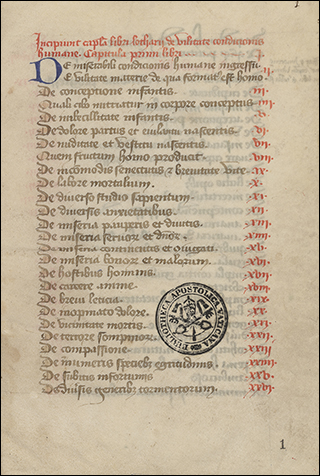 Incipiunt capla libri lotharii de vilitate condicionis
humane. Capitula primi libri. I.
De miserabili condicionis humane ingressu
De vilitate materie de qua formatus est homo. II.
De conceptione infantis. III.
Quali cibo nutriatur in corpore conceptus IIII.
De imbecillitate infantis. V.
De dolore partus et eiulatu nascentis. VI
De nuditate et vestitu nascentis. VII.
Quem fructum homo producat. VIII.
De incomodis senectutis et brevitate vite. IX.
De labore mortalium. X.
De diverso studio sapientum. XI.
De diversis anxietatibus. XII.
De miseria pauperis et divitis. XIII.
De miseria servorum et dnorum. XIIII.
De miseria continentis et coniugati. XV.
De miseria bonorum et malorum. XVI.
De hostibus hominis. XVII.
De carcere anime. XVIII.
De brevi leticia. XIX.
De inopinato dolore. XX.
De vicinitate mortis. XXI.
De terrore sompniorum. XXII
De compassione. XXIII
De innumeris speciebus egritudinis. XXIIII
De subitis infortuniis XXV
De diversis generibus tormentorum. XXVI
BIBLIOTHECA APOSTOLICA VATICANA
1